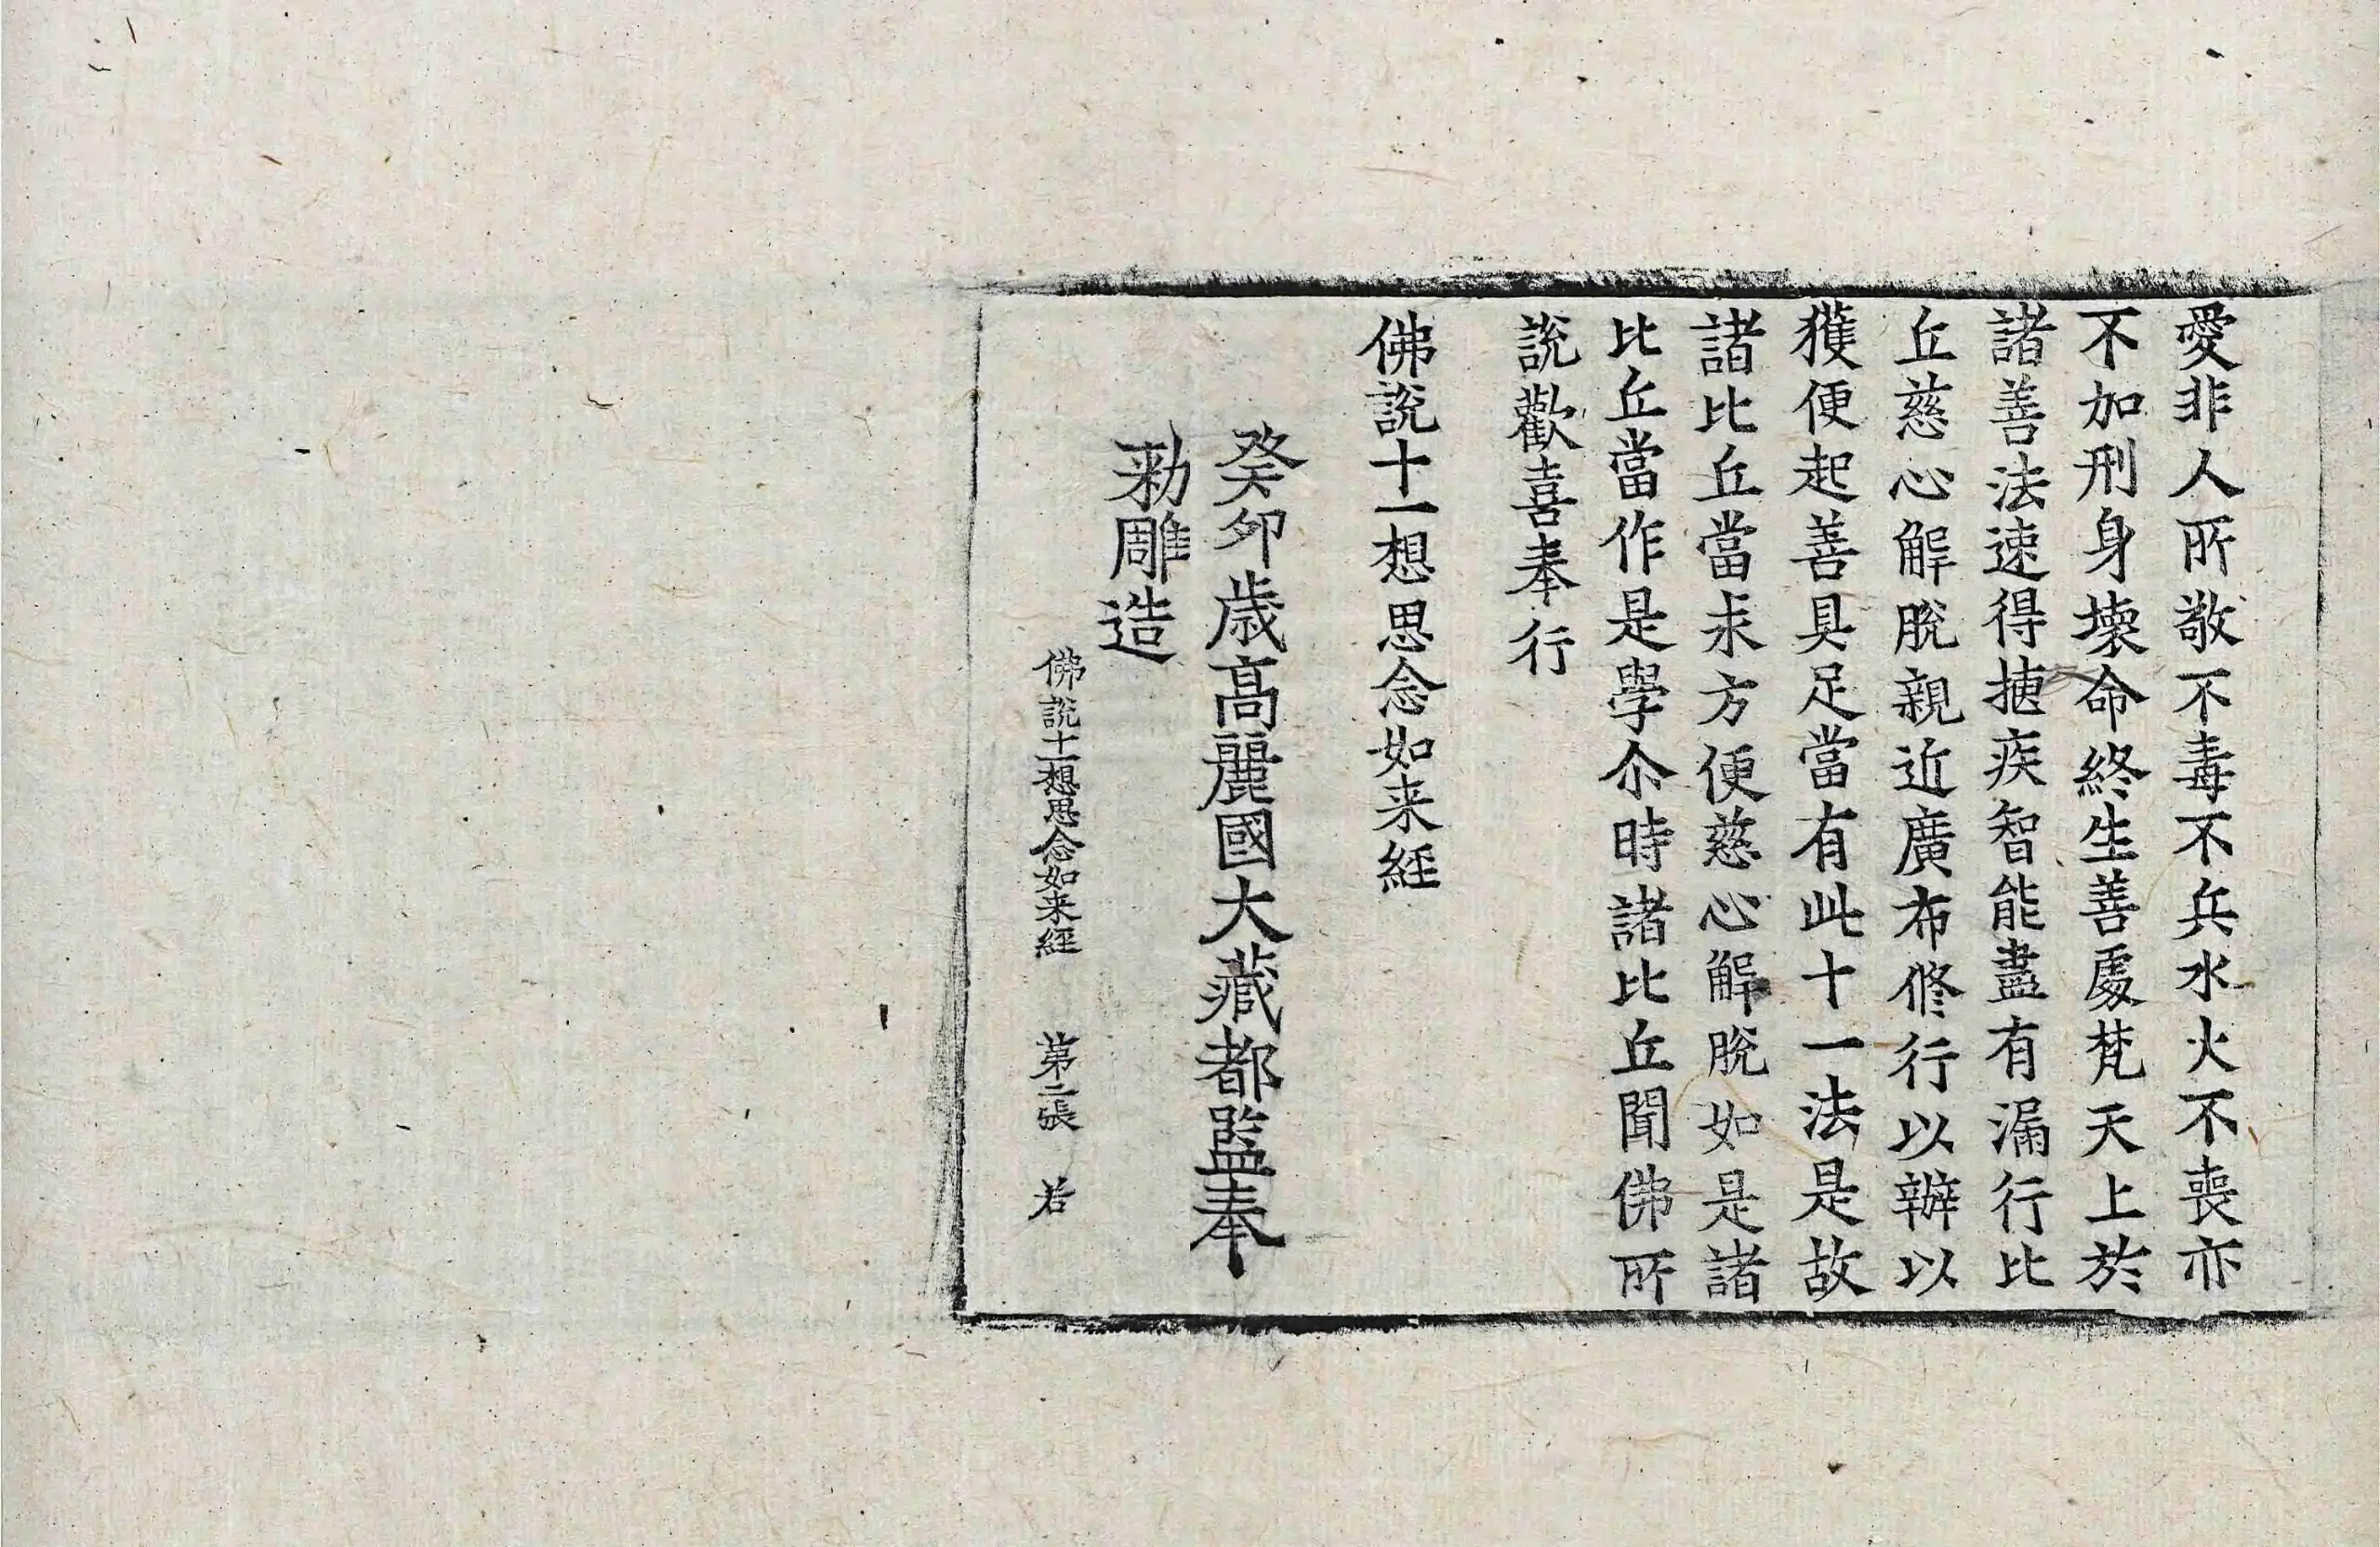 愛非人所敬不毒不兵水火不喪亦
不加刑身壞命終生善處梵天上於
諸善法速得揵疾智能盡有漏行比
丘慈心解脫親近廣布修行以辦以
獲便起善具足當有此十一法是故
諸比丘當求方便慈心解脫如是諸
比丘當作是學尒時諸比丘聞佛所
說歡喜奉行
佛說十一想思念如来經
癸卯歲高麗國大藏都監奉
勑雕造
佛說十一想思念如来經 第二張 若